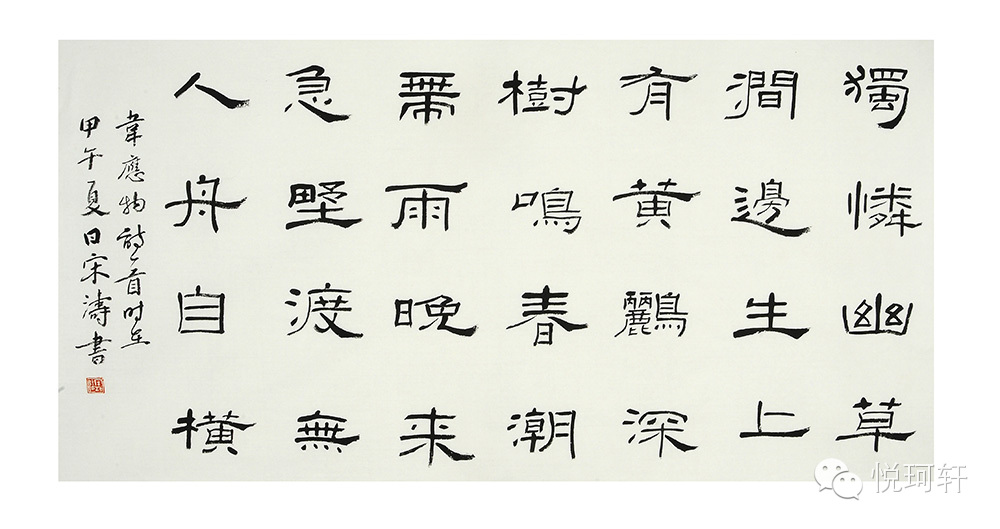 獨憐幽草
澗邊生上
有黄鸝深
樹鳴春潮
帶雨晚来
急野渡無
人舟自橫
韋應物詩一首时在
甲午夏日宋濤書
悦珂轩